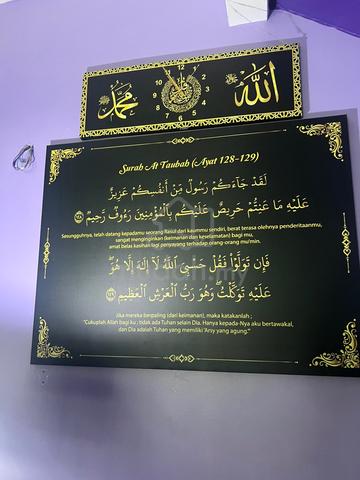 محمد
الله
12
11
1
10
2
9
3
8
4
7
5
6
Surah At Taubah (Ayat 128-129)
لَقَدْ جَآءَكُمْ رَسُولٌ مِّنْ أَنفُسِكُمْ عَزِيزٌ
عَلَيْهِ مَا عَنِتُّمْ حَرِيصٌ عَلَيْكُم بِٱلْمُؤْمِنِينَ رَءُوفٌ رَّحِيمٌ ١٢٨
Sesungguhnya, telah datang kepadamu seorang Rasul dari kaummu sendiri, berat terasa olehnya penderitaanmu,
sangat menginginkan (keimanan dan keselamatan) bagi mu,
amat belas kasihan lagi penyayang terhadap orang-orang mu'min.
فَإِن تَوَلَّوْا۟ فَقُلْ حَسْبِىَ ٱللَّهُ لَآ إِلَٰهَ إِلَّا هُوَ ۖ
عَلَيْهِ تَوَكَّلْتُ ۖ وَهُوَ رَبُّ ٱلْعَرْشِ ٱلْعَظِيمِ ١٢٩
Jika mereka berpaling (dari keimanan), maka katakanlah :
"Cukuplah Allah bagi ku ; tidak ada Tuhan selain Dia. Hanya kepada-Nya aku bertawakal,
dan Dia adalah Tuhan yang memiliki 'Arsy yang agung."